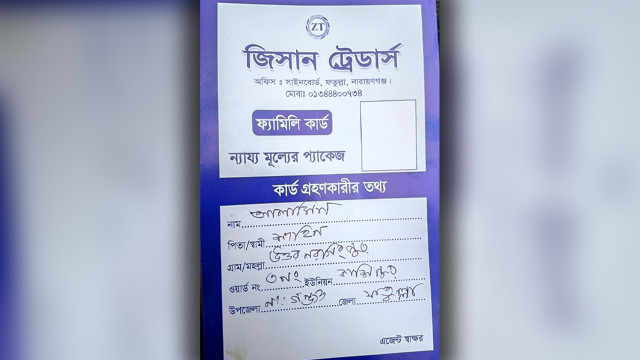 ZT
জিসান ট্রেডার্স
অফিস : সাইনবোর্ড, ফতুল্লা, নারায়ণগঞ্জ।
মোবাঃ ০১৩৪৪৪০০৭৩৪
ফ্যামিলি কার্ড
ন্যায্য মূল্যের প্যাকেজ
কার্ড গ্রহণকারীর তথ্য
নাম
পিতা/স্বামী শাহিন
গ্রাম/মহল্লা উত্তর নরসিংপুর
ওয়ার্ড নং ৩ নং ইউনিয়ন কাশিপুর
উপজেলা না: গঞ্জ জেলা ফতুল্লা
এজেন্ট স্বাক্ষর